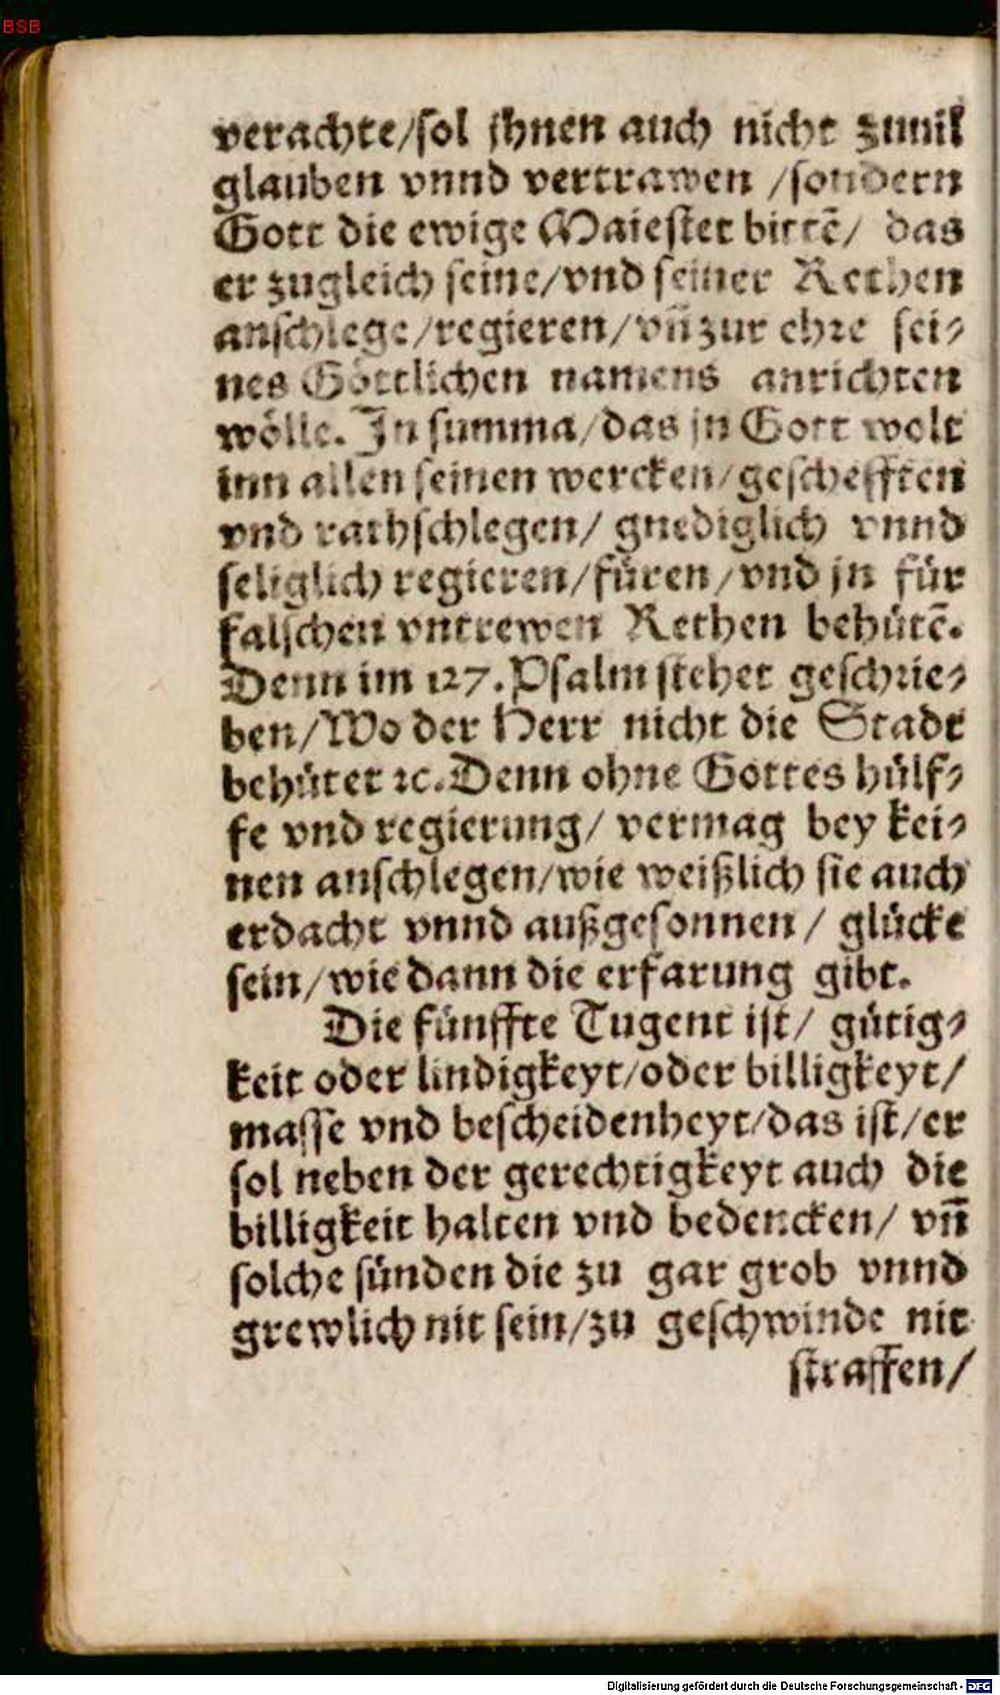 BSB
verachte/sol jhnen auch nicht zuuil
glauben vnnd vertrawen /sondern
Gott die ewige Maiestet bittē/ das
er zugleich seine/vnd seiner Rethen
anschlege/regieren/vñ zur ehre sei⸗
nes Göttlichen namens anrichten
wölle. In summa/das jn Gott wolt
inn allen seinen wercken/geschefften
vnd rathschlegen/ gnediglich vnnd
seliglich regieren/füren/vnd jn für
falschen vntrewen Rethen behütē.
Denn im 127. Psalm stehet geschrie⸗
ben/Wo der Herr nicht die Stadt
behütet ꝛc. Denn ohne Gottes hülf⸗
fe vnd regierung/ vermag bey kei⸗
nen anschlegen/wie weißlich sie auch
erdacht vnnd außgesonnen/ glücke
sein/wie dann die erfarung gibt.
Die fünffte Tugent ist/ gütig⸗
keit oder lindigkeyt/oder billigkeyt/
masse vnd bescheidenheyt/das ist/er
sol neben der gerechtigkeyt auch die
billigkeit halten vnd bedencken/ vñ
solche sünden die zu gar grob vnnd
grewlich nit sein/zu geschwinde nit
straffen/
Digitalisierung gefördert durch die Deutsche Forschungsgemeinschaft - DFG